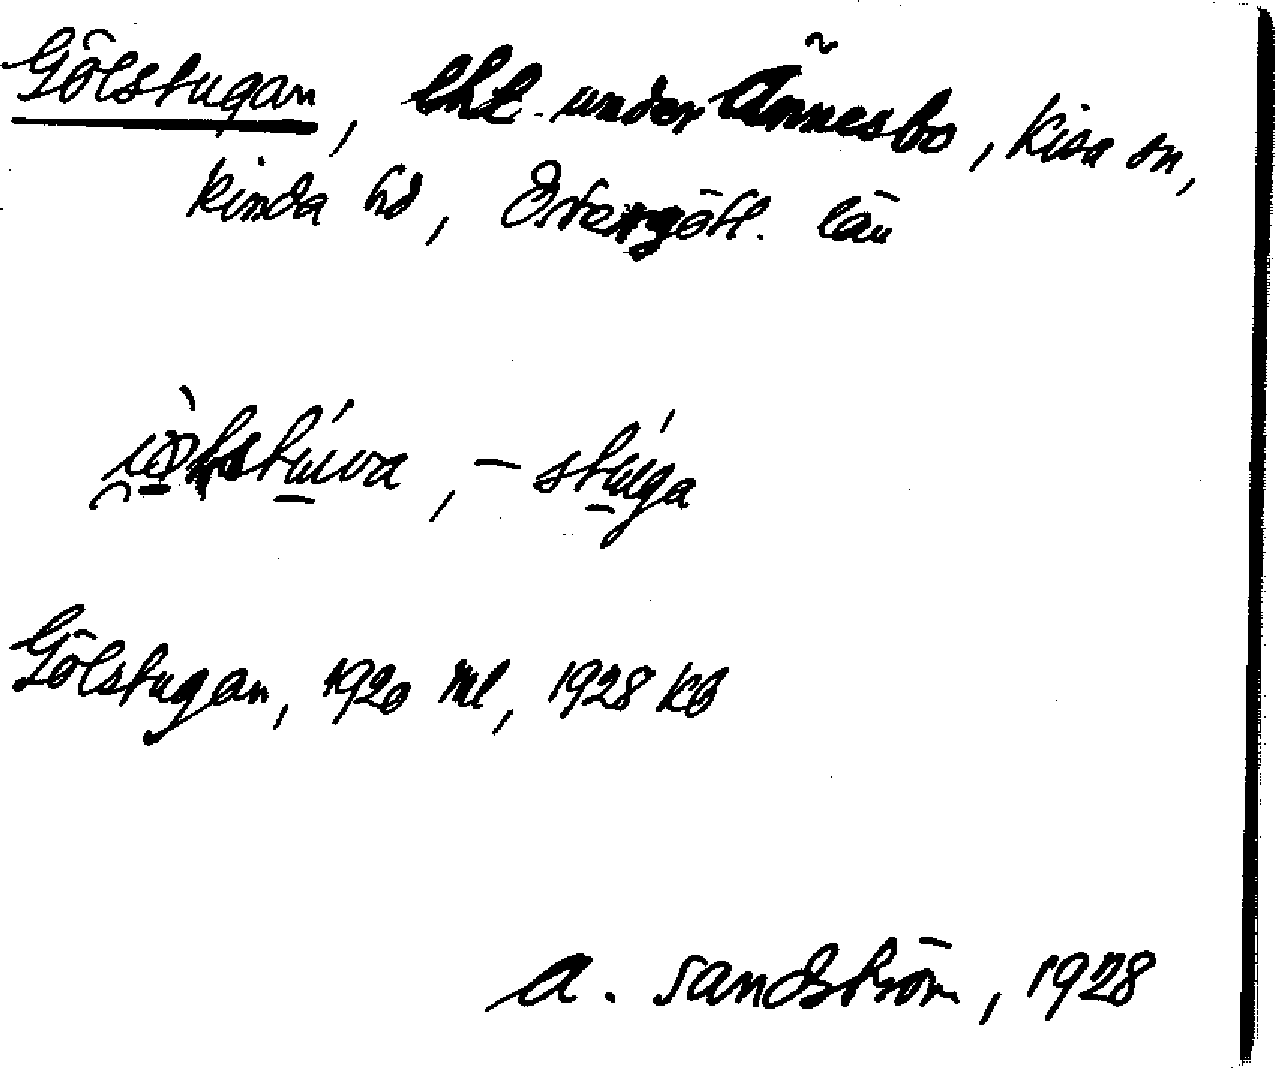 Gölstugan, lht. under Ännesbo, Kisa sn,
Kinda hd, Östergötl. län
-stúga
Gölstugan, 1920 ml, 1928 kb
A. Sandström, 1928